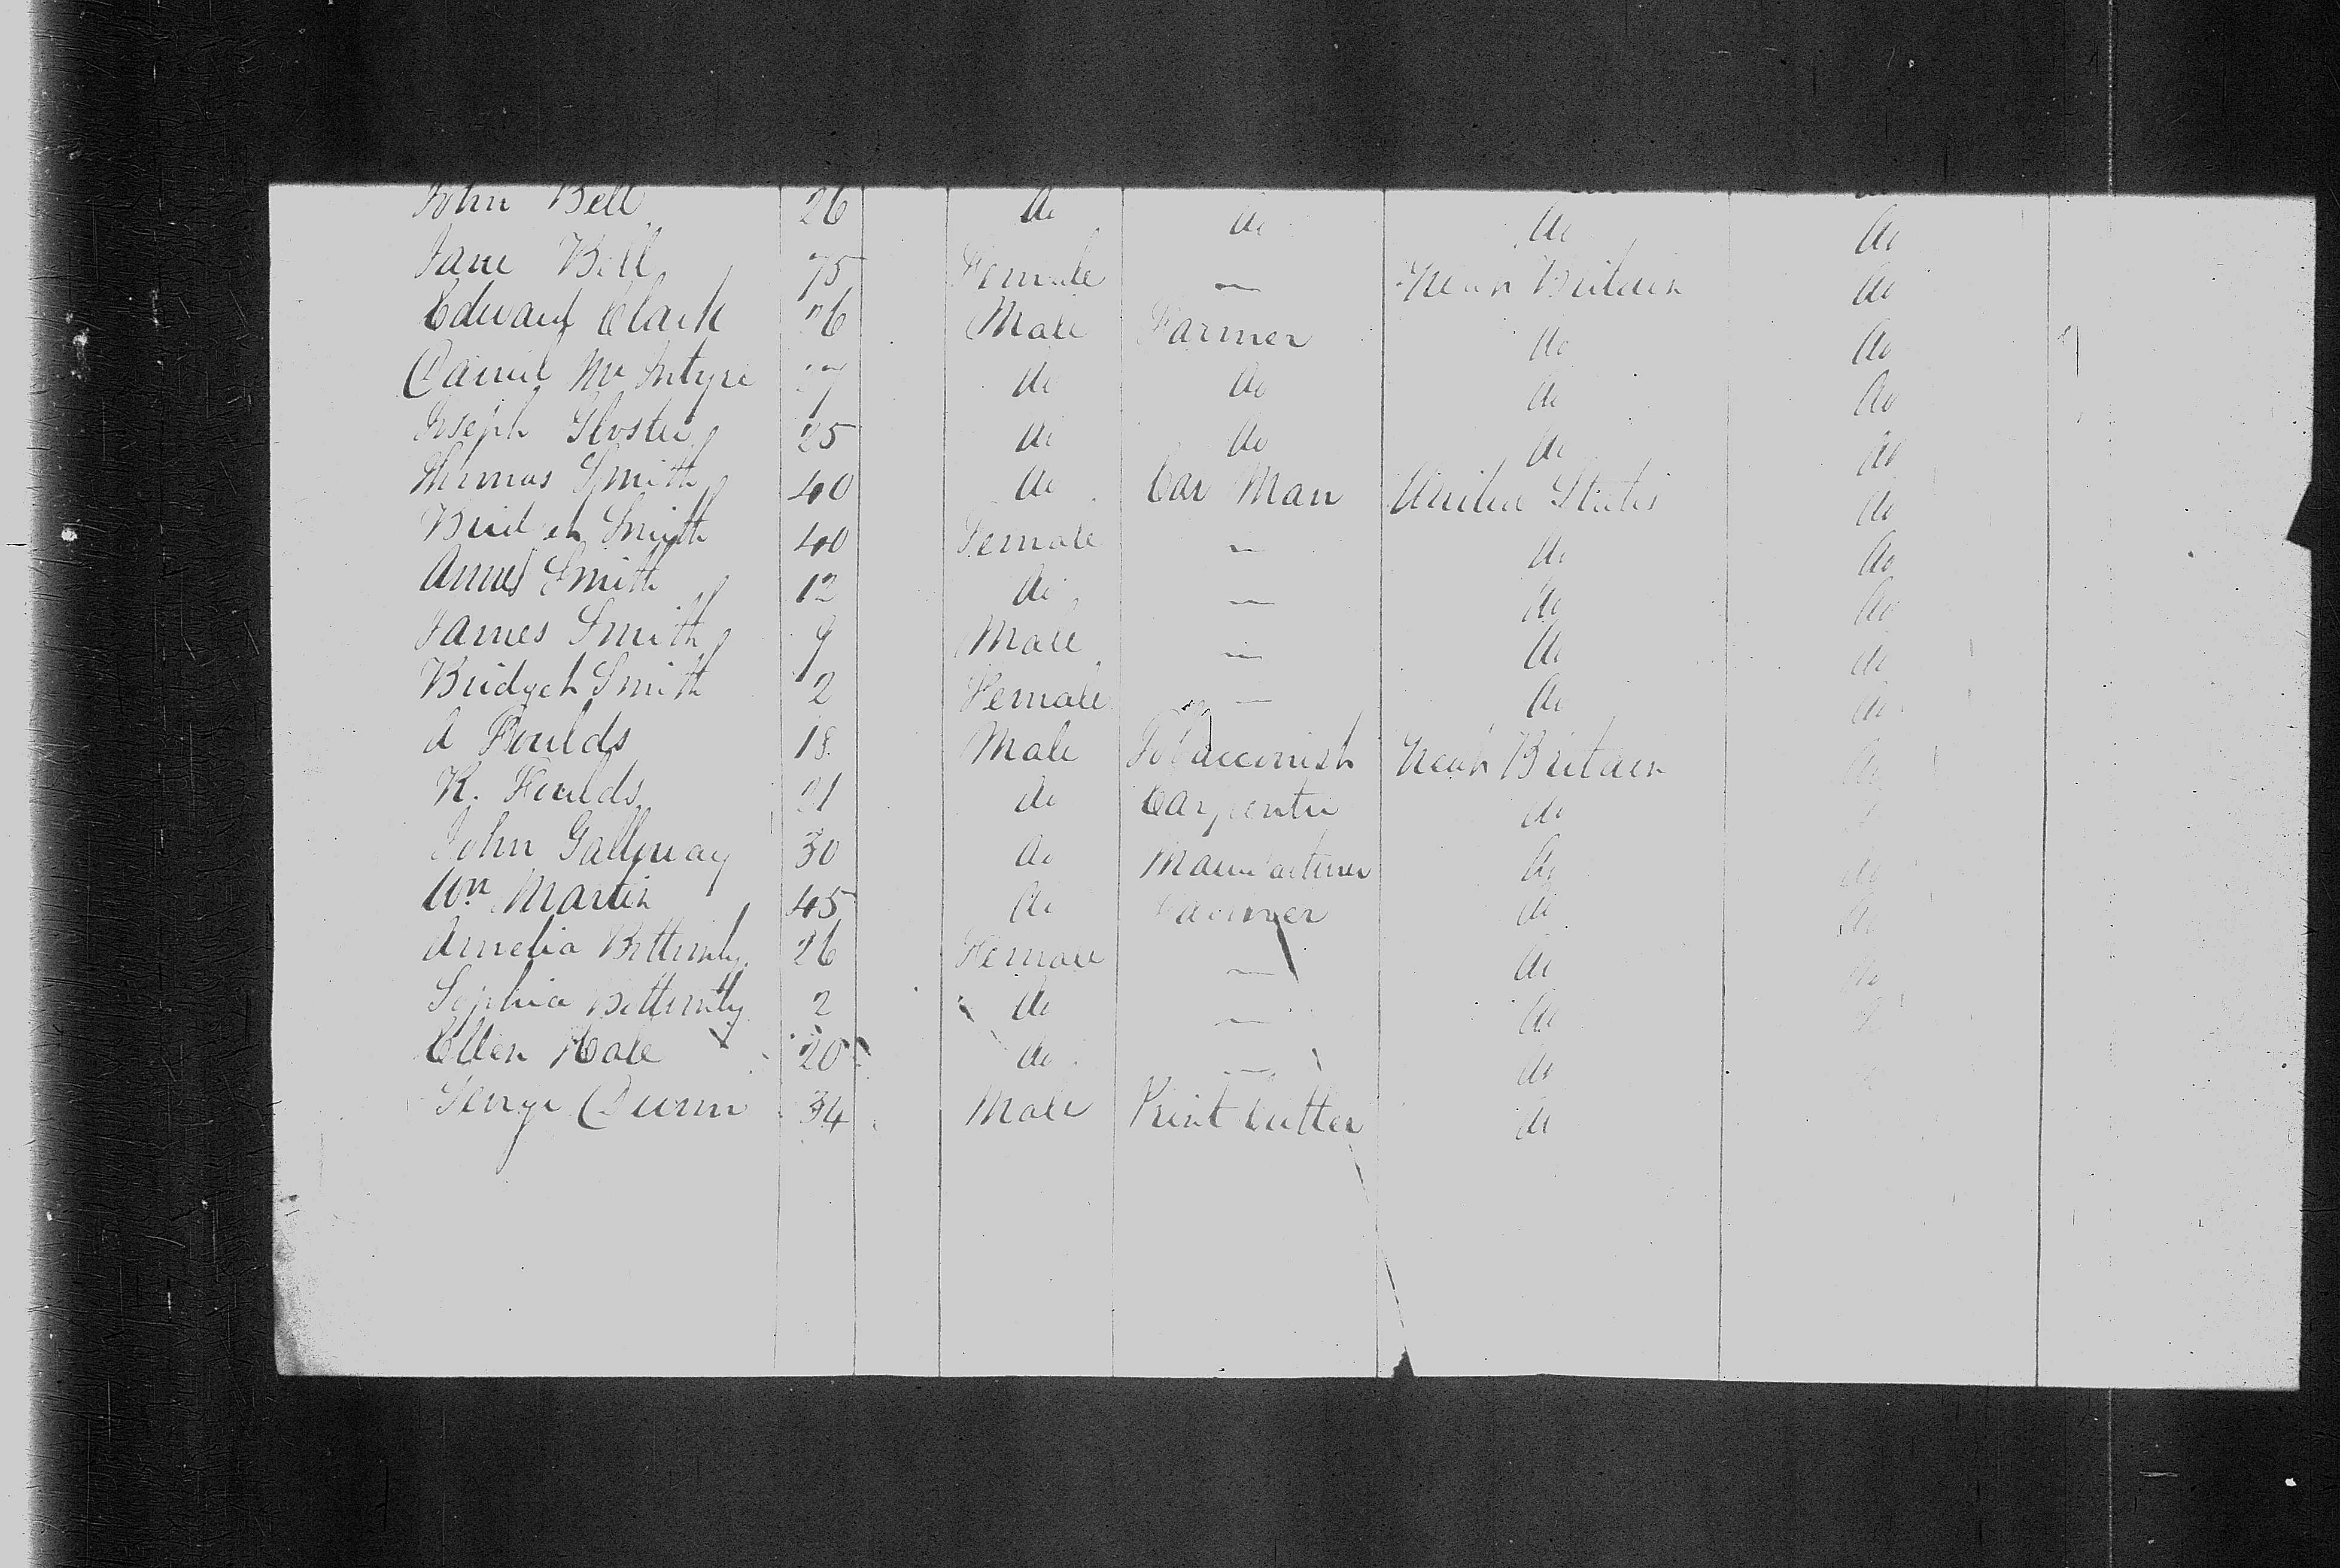 John Bell 26 do do do do
Jane Bell 75 Female — Great Britain do
Edward Clark 26 Male Farmer do do
Daniel McIntyre do do do do
Joseph Gloster 25 do do do do
Thomas Smith 40 do Car Man United States do
Bridget Smith 40 Female — do do
Anne Smith 12 do — do do
James Smith 9 Male — do do
Bridget Smith 2 Female — do do
A Foulds 18 Male Tobacconist Great Britain do
R. Foulds 21 do Carpenter do
John Galloway 30 do Manufacturer do do
Wm Martin 45 do Farmer do do
Amelia 26 Female — do do
Sophia 2 do — do
Ellen Cole 20 do — do
George Dunn 34 Male Print Cutter do